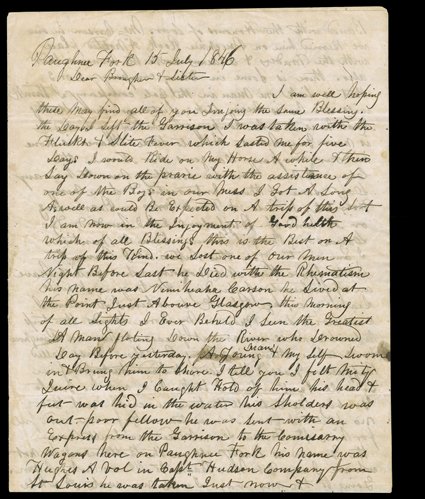 Paughnee Fork 15 July 1846
Dear Brougher & Sister
I am well hoping
these May find all of you Injoying the Same Blessing.
the Day I left the Garrison I was taken withe the
& Slite Fever which Lasted Me for five
Days I would Ride on My Horse A while & then
Lay Down on the prarie with the assistance of
one of the Boys in our Mess I Got A Long
As well as could Be Expected on A trip of this Sort
I am now in the Injoyment of Good health
which of all Blessings this is the Best on A
trip of this Kind we Lost one of our Men
Night Before Last he Died withe the Rhumatism
his name was Carson he Lived at
the Point Just Above Glasgow, this Morning
of all Sights I Ever Beheld I Seen the Greatest
A Man floting Down the River who Drowned
Day Before yesterday. A Young Man & My Self Swoom
in & Bring him to Shore I tell you I felt Mity
when I Caught Hold of him his head &
feet was hid in the water his Sholders was
out - poor fellow he was Sent with an
Express from the Garrison to the Comisary
Wagons here on Paughnee Fork his name was
Hughes A Vol in Capt Hudson Company from
St Louis he was taken Just now &